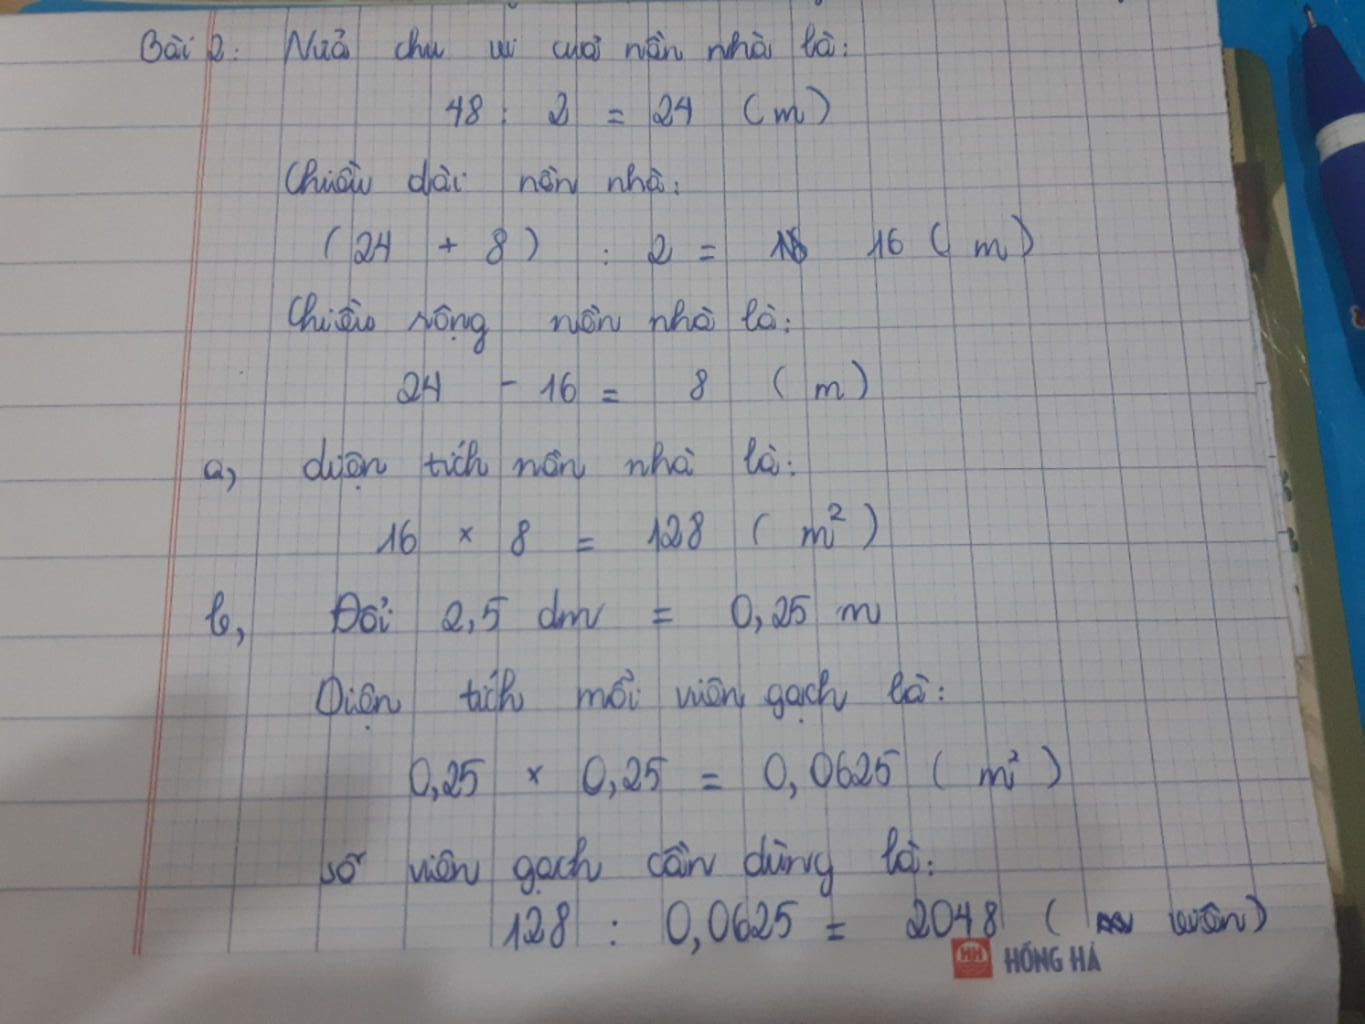 Bài 2: Nửa chu vi của nền nhà là:
48 : 2 = 24 (m)
Chiều dài nền nhà:
(24 + 8) : 2 = 16 (m)
Chiều rộng nền nhà là:
24 - 16 = 8 (m)
a, diện tích nền nhà là:
16 × 8 = 128 (m²)
b, Đổi 2,5 dm = 0,25 m
Diện tích mỗi viên gạch là:
0,25 × 0,25 = 0,0625 (m²)
số viên gạch cần dùng là:
128 : 0,0625 = 2048 (viên)
HỒNG HÀ